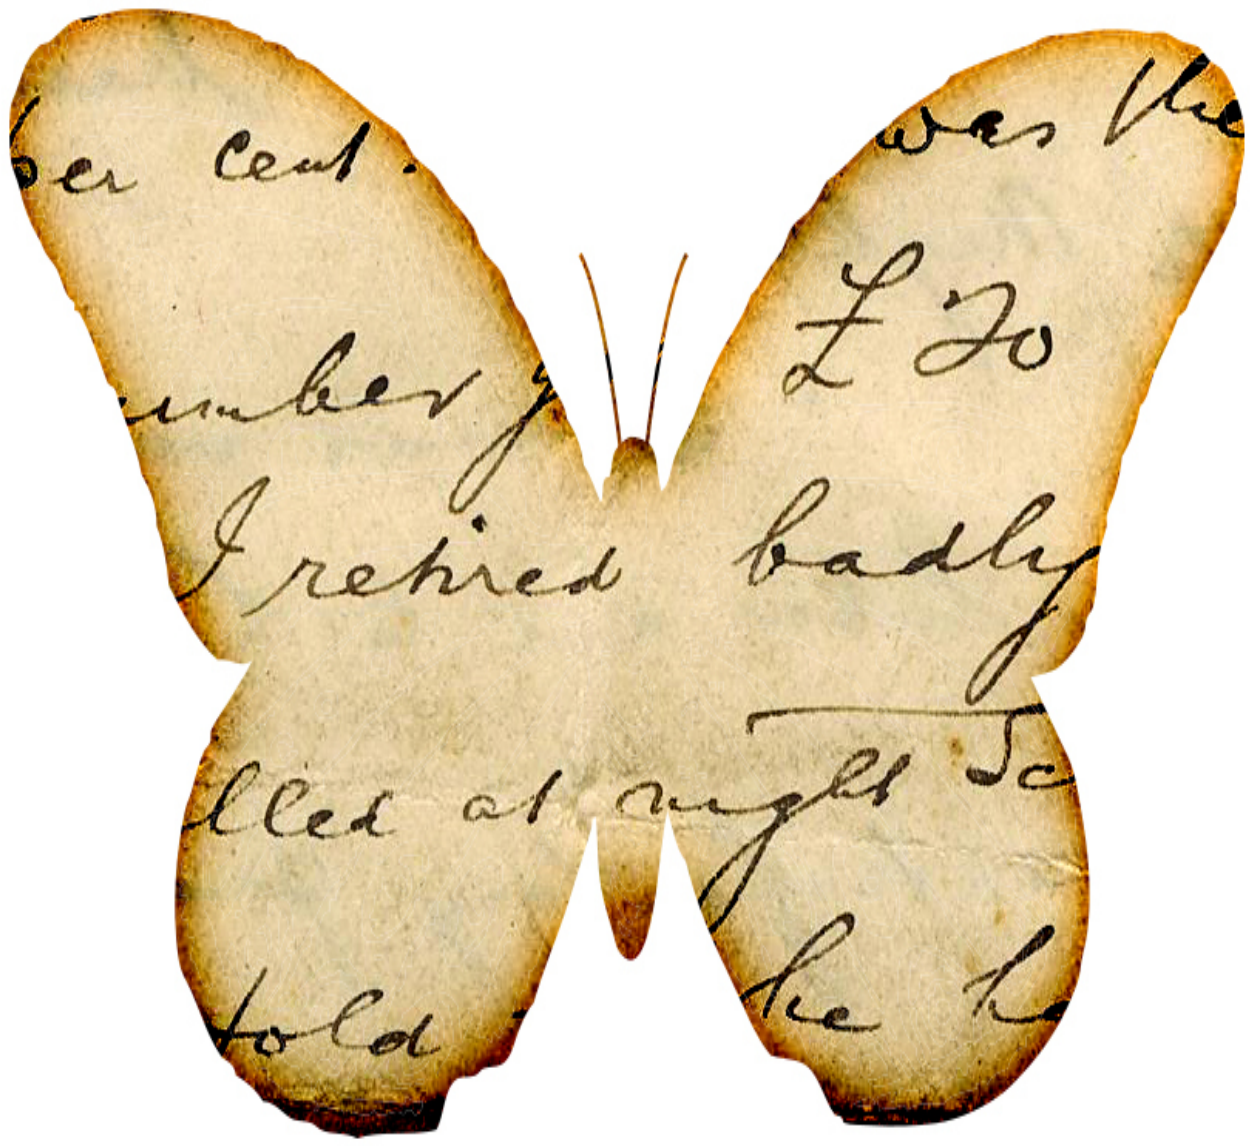 per cent. was the
£ 70
number
I retired badly
lled at night Sc
told he ha